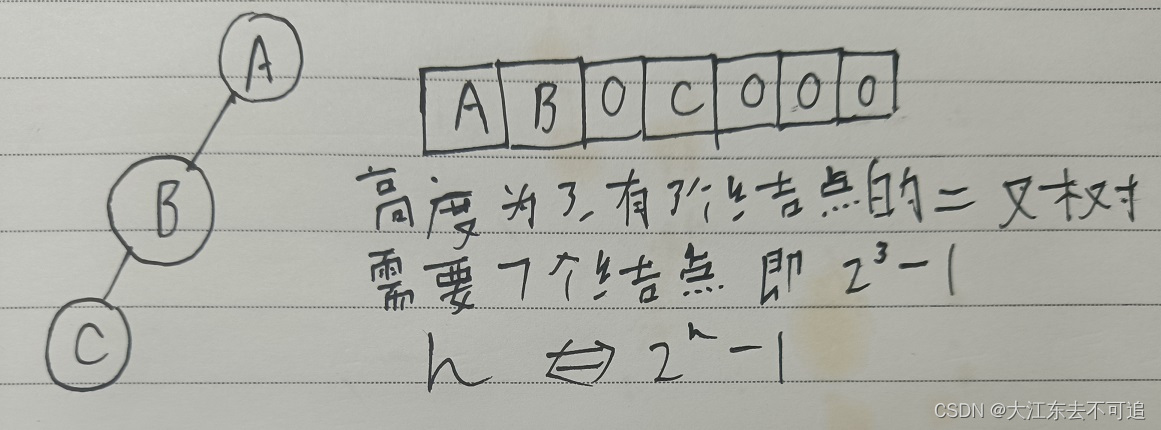 A
A B 0 C 0 0 0
B
高度为3,有3个结点的二叉树
需要7个结点 即 2³-1
C
h ⇔ 2ʰ-1
CSDN @大江东去不可追